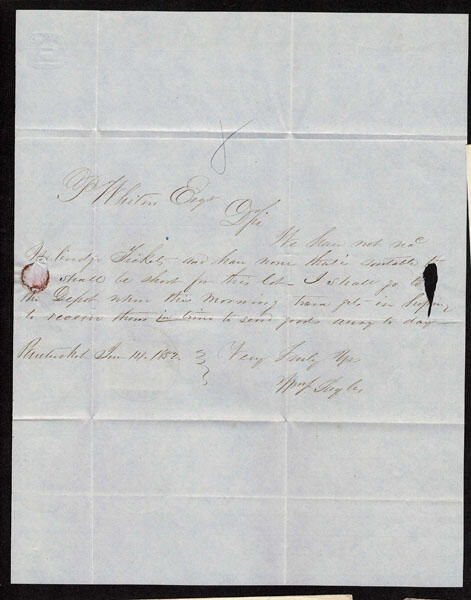 P Whitin Esqr
D Sir
We have not recd
Tickets and have none that is suitable to
shall be short for this lot - I shall go to
the Depot when this morning train gets in hoping
to receive them in time to send goods away to day
Pawtucket Jan 14. 1852.
Very Truly Yrs
Ingles